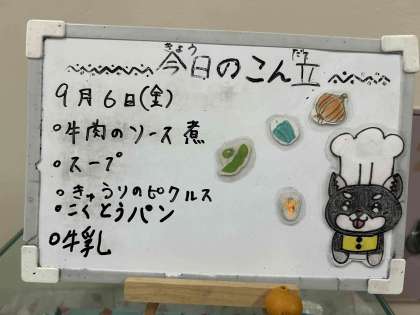 今日のこん立
きょう だて
9月6日(金)
○牛肉のソース煮
○スープ
○きゅうりのピクルス
○こくとうパン
○牛乳